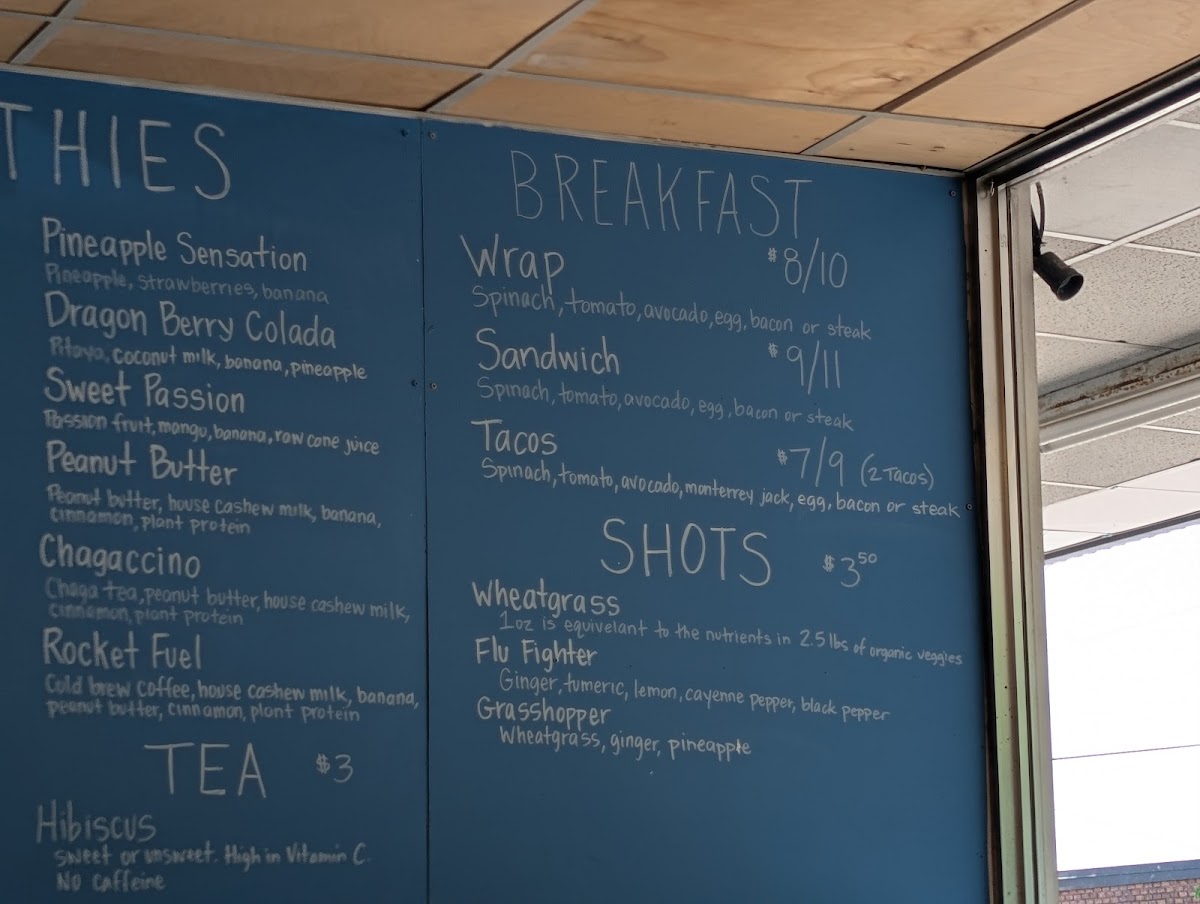 THIES
Pineapple Sensation
Pineapple, strawberries, banana
Dragon Berry Colada
Pitaya, coconut milk, banana, pineapple
Sweet Passion
Passion fruit, mango, banana, raw cane juice
Peanut Butter
Peanut butter, house cashew milk, banana,
cinnamon, plant protein
Chagaccino
Chaga tea, peanut butter, house cashew milk,
cinnamon, plant protein
Rocket Fuel
Cold brew coffee, house cashew milk, banana,
peanut butter, cinnamon, plant protein
TEA $3
Hibiscus
sweet or unsweet. High in Vitamin C.
No caffeine
BREAKFAST
Wrap $8/10
Spinach, tomato, avocado, egg, bacon or steak
Sandwich $9/11
Spinach, tomato, avocado, egg, bacon or steak
Tacos $7/9 (2 Tacos)
Spinach, tomato, avocado, monterrey jack, egg, bacon or steak
SHOTS $350
Wheatgrass
1oz is equivelant to the nutrients in 2.5 lbs of organic veggies
Flu Fighter
Ginger, tumeric, lemon, cayenne pepper, black pepper
Grasshopper
Wheatgrass, ginger, pineapple